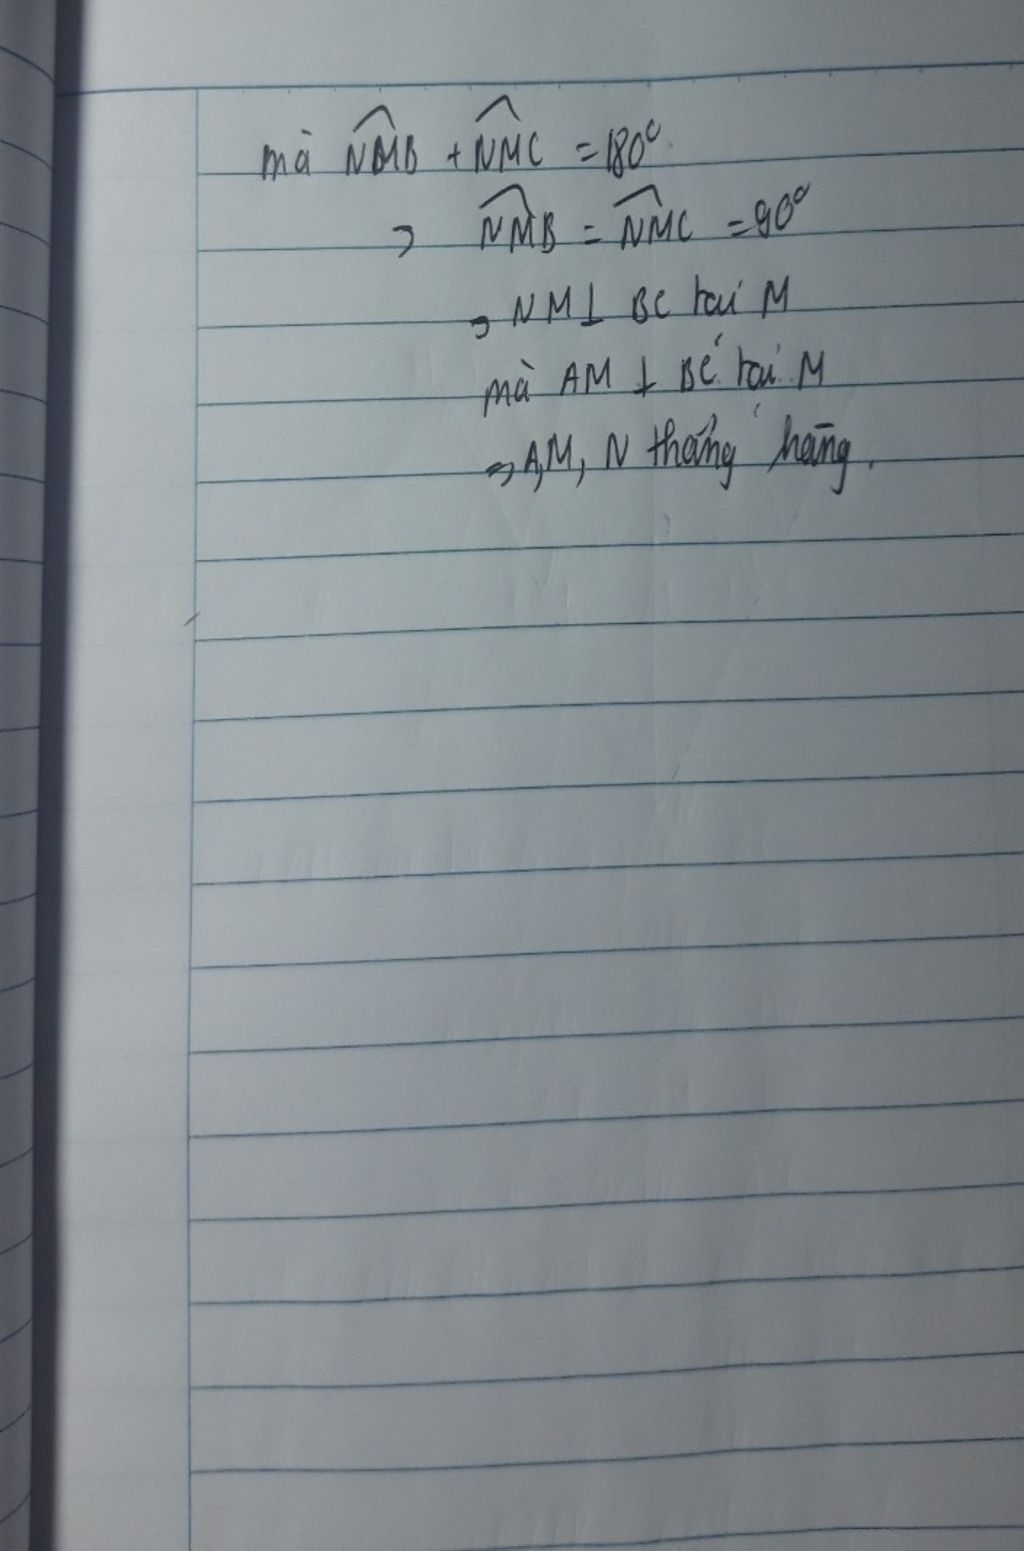 mà NMB + NMC = 180°
⇒ NMB = NMC = 90°
⇒ NM ⊥ BC tại M
mà AM ⊥ BC tại M
⇒ A, M, N thẳng hàng.